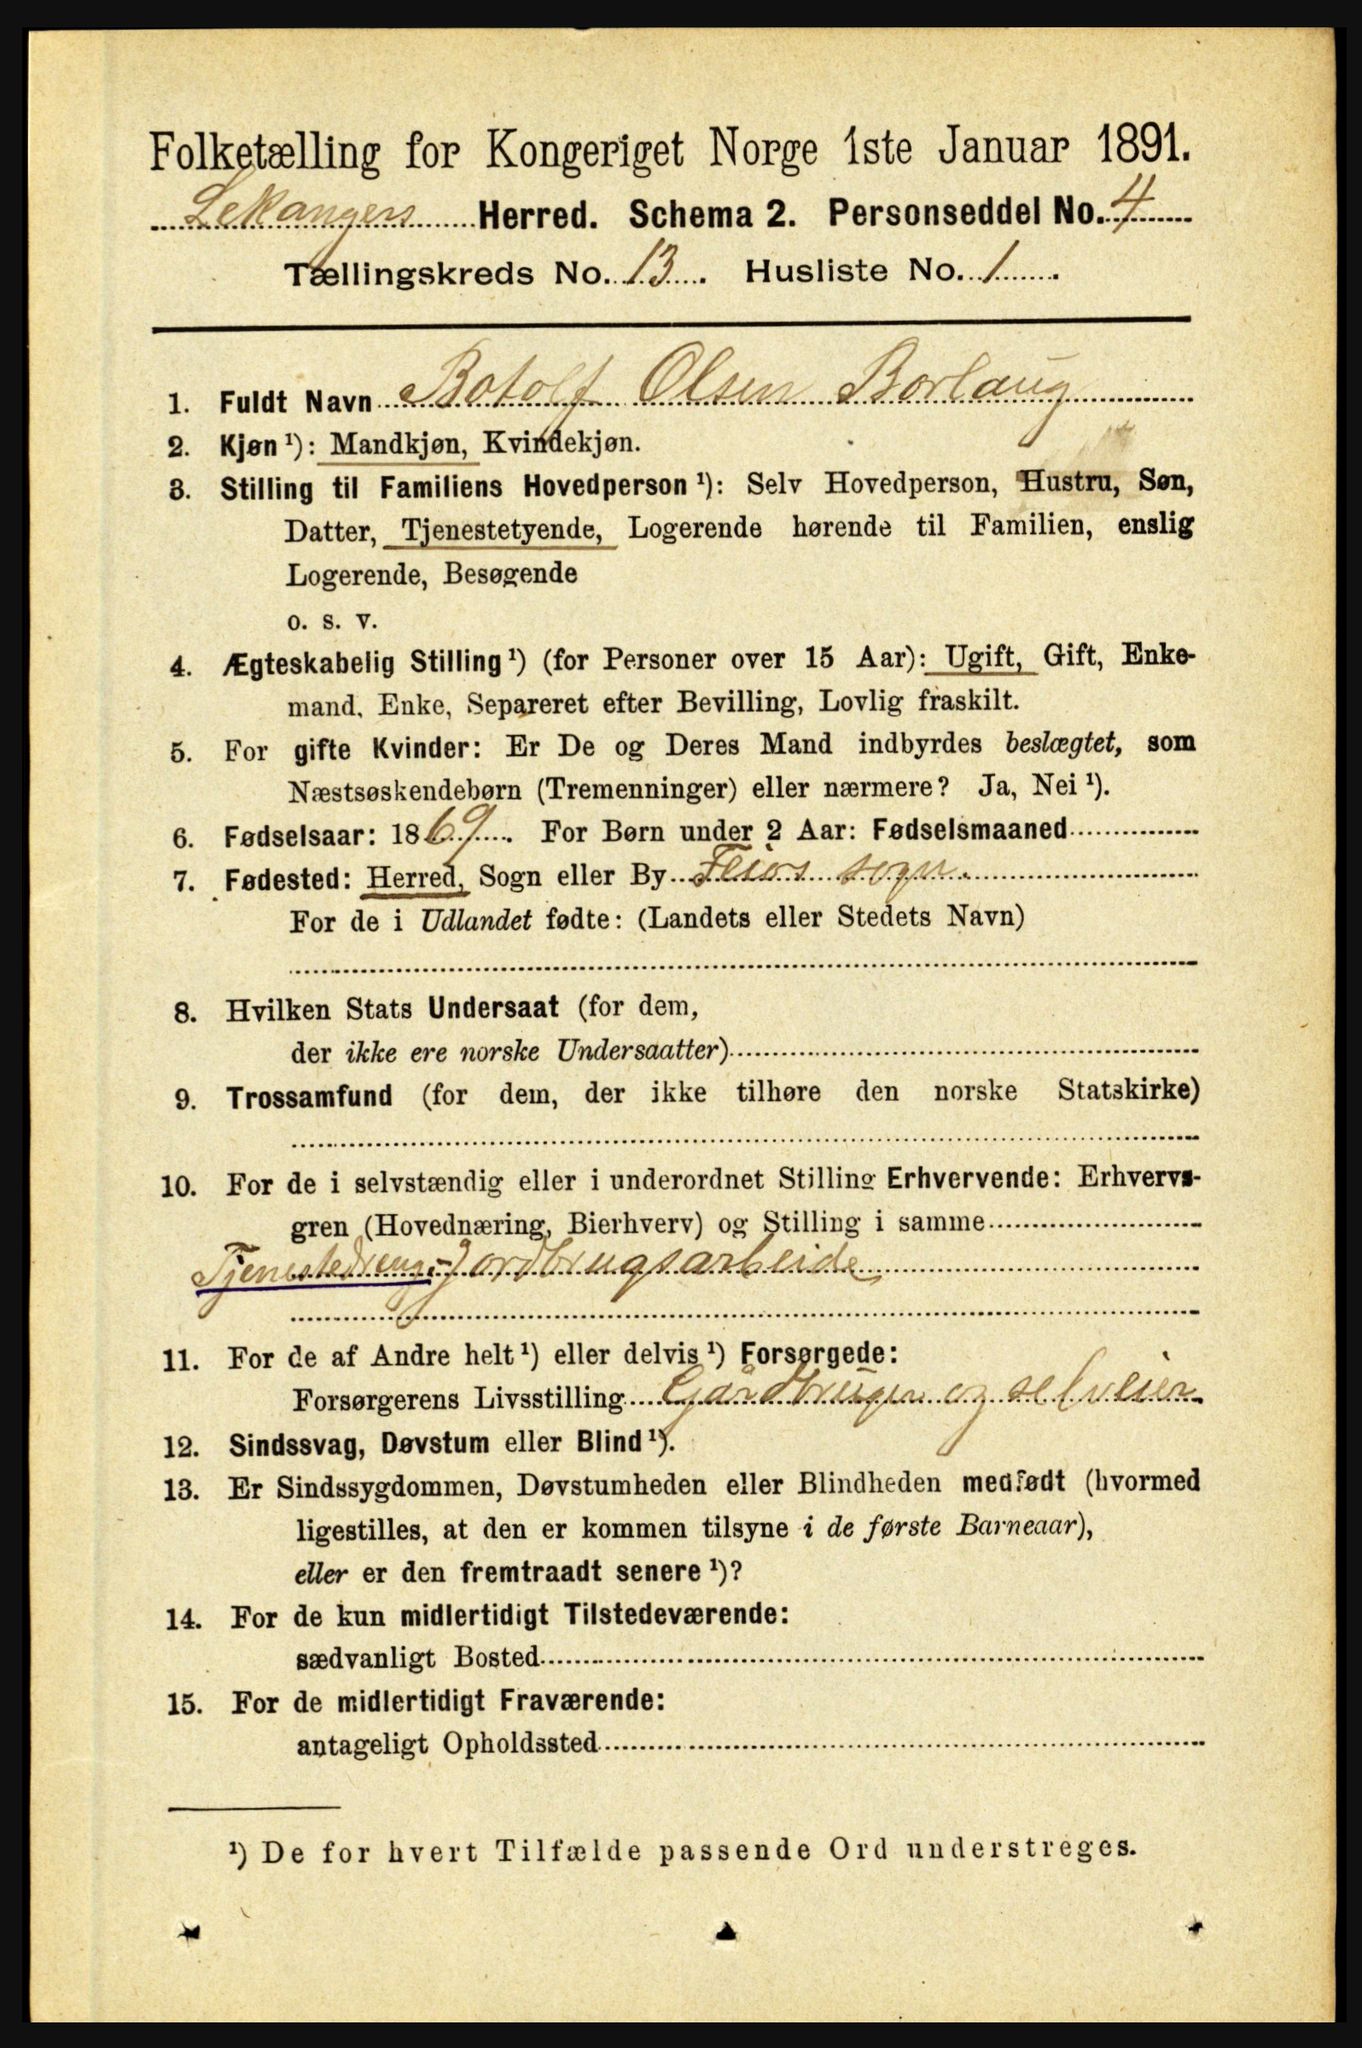 Folketælling for Kongeriget Norge 1ste Januar 1891.
Lekangers Herred. Schema 2. Personseddel No. 4
Tællingskreds No. 13. Husliste No. 1
1. Fuldt Navn Botolf Olsen Borlaug
2. Kjøn ¹): Mandkjøn, Kvindekjøn.
3. Stilling til Familiens Hovedperson ¹): Selv Hovedperson, Hustru, Søn,
Datter, Tjenestetyende, Logerende hørende til Familien, enslig
Logerende, Besøgende
o. s. v.
4. Ægteskabelig Stilling ¹) (for Personer over 15 Aar): Ugift, Gift, Enke-
mand, Enke, Separeret efter Bevilling, Lovlig fraskilt.
5. For gifte Kvinder: Er De og Deres Mand indbyrdes beslægtet, som
Næstsøskendebørn (Tremenninger) eller nærmere? Ja, Nei ¹).
6. Fødselsaar: 1869. For Børn under 2 Aar: Fødselsmaaned
7. Fødested: Herred, Sogn eller By Feios sogn.
For de i Udlandet fødte: (Landets eller Stedets Navn)
8. Hvilken Stats Undersaat (for dem,
der ikke ere norske Undersaatter)
9. Trossamfund (for dem, der ikke tilhøre den norske Statskirke)
10. For de i selvstændig eller i underordnet Stilling Erhvervende: Erhvervs-
gren (Hovednæring, Bierhverv) og Stilling i samme
Tjenestedreng,-Jordbrugsarbeide
11. For de af Andre helt ¹) eller delvis ¹) Forsørgede:
Forsørgerens Livsstilling Gårdbruger og selveier
12. Sindssvag, Døvstum eller Blind ¹).
13. Er Sindssygdommen, Døvstumheden eller Blindheden medfødt (hvormed
ligestilles, at den er kommen tilsyne i de første Barneaar),
eller er den fremtraadt senere ¹)?
14. For de kun midlertidigt Tilstedeværende:
sædvanligt Bosted
15. For de midlertidigt Fraværende:
antageligt Opholdssted
¹) De for hvert Tilfælde passende Ord understreges.